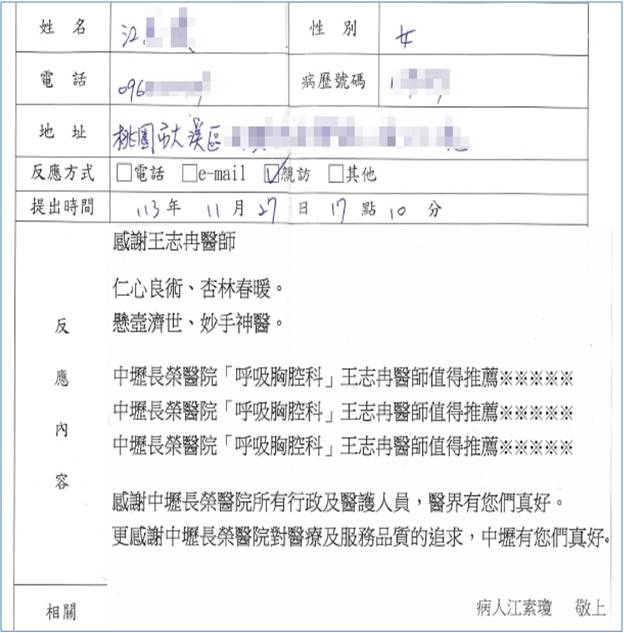 姓名 江 性別 女
電話 096 病歷號碼
地址 桃園市大溪區
反應方式 □電話 □e-mail ☑親訪 □其他
提出時間 113年 11月 27日 17點 10分
反應內容
感謝王志冉醫師
仁心良術、杏林春暖。
懸壺濟世、妙手神醫。
中壢長榮醫院「呼吸胸腔科」王志冉醫師值得推薦※※※※※
中壢長榮醫院「呼吸胸腔科」王志冉醫師值得推薦※※※※※
中壢長榮醫院「呼吸胸腔科」王志冉醫師值得推薦※※※※※
感謝中壢長榮醫院所有行政及醫護人員，醫界有您們真好。
更感謝中壢長榮醫院對醫療及服務品質的追求，中壢有您們真好。
病人江素瓊 敬上
相關